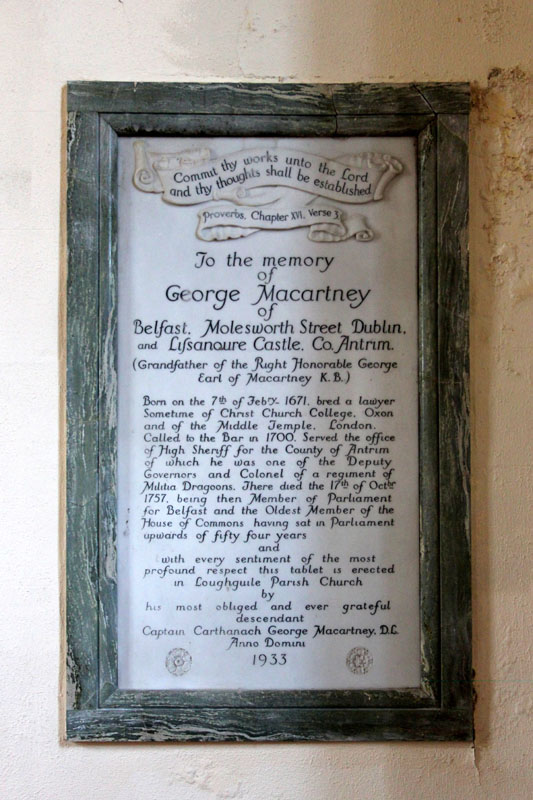 Commit thy works unto the Lord
and thy thoughts shall be established
Proverbs, Chapter XVI, Verse 3
To the memory
of
George Macartney
of
Belfast, Molesworth Street Dublin,
and Lissanoure Castle, Co. Antrim.
(Grandfather of the Right Honorable George
Earl of Macartney K.B.)
Born on the 7th of Febry. 1671, bred a lawyer
Sometime of Christ Church College, Oxon
and of the Middle Temple, London.
Called to the Bar in 1700. Served the office
of High Sheriff for the County of Antrim
of which he was one of the Deputy
Governors and Colonel of a regiment of
Militia Dragoons. There died the 17th of Octbr
1757, being then Member of Parliament
for Belfast and the Oldest Member of the
House of Commons having sat in Parliament
upwards of fifty four years
and
with every sentiment of the most
profound respect this tablet is erected
in Loughguile Parish Church
by
his most obliged and ever grateful
descendant
Captain Carthanach George Macartney, D.L.
Anno Domini
1933